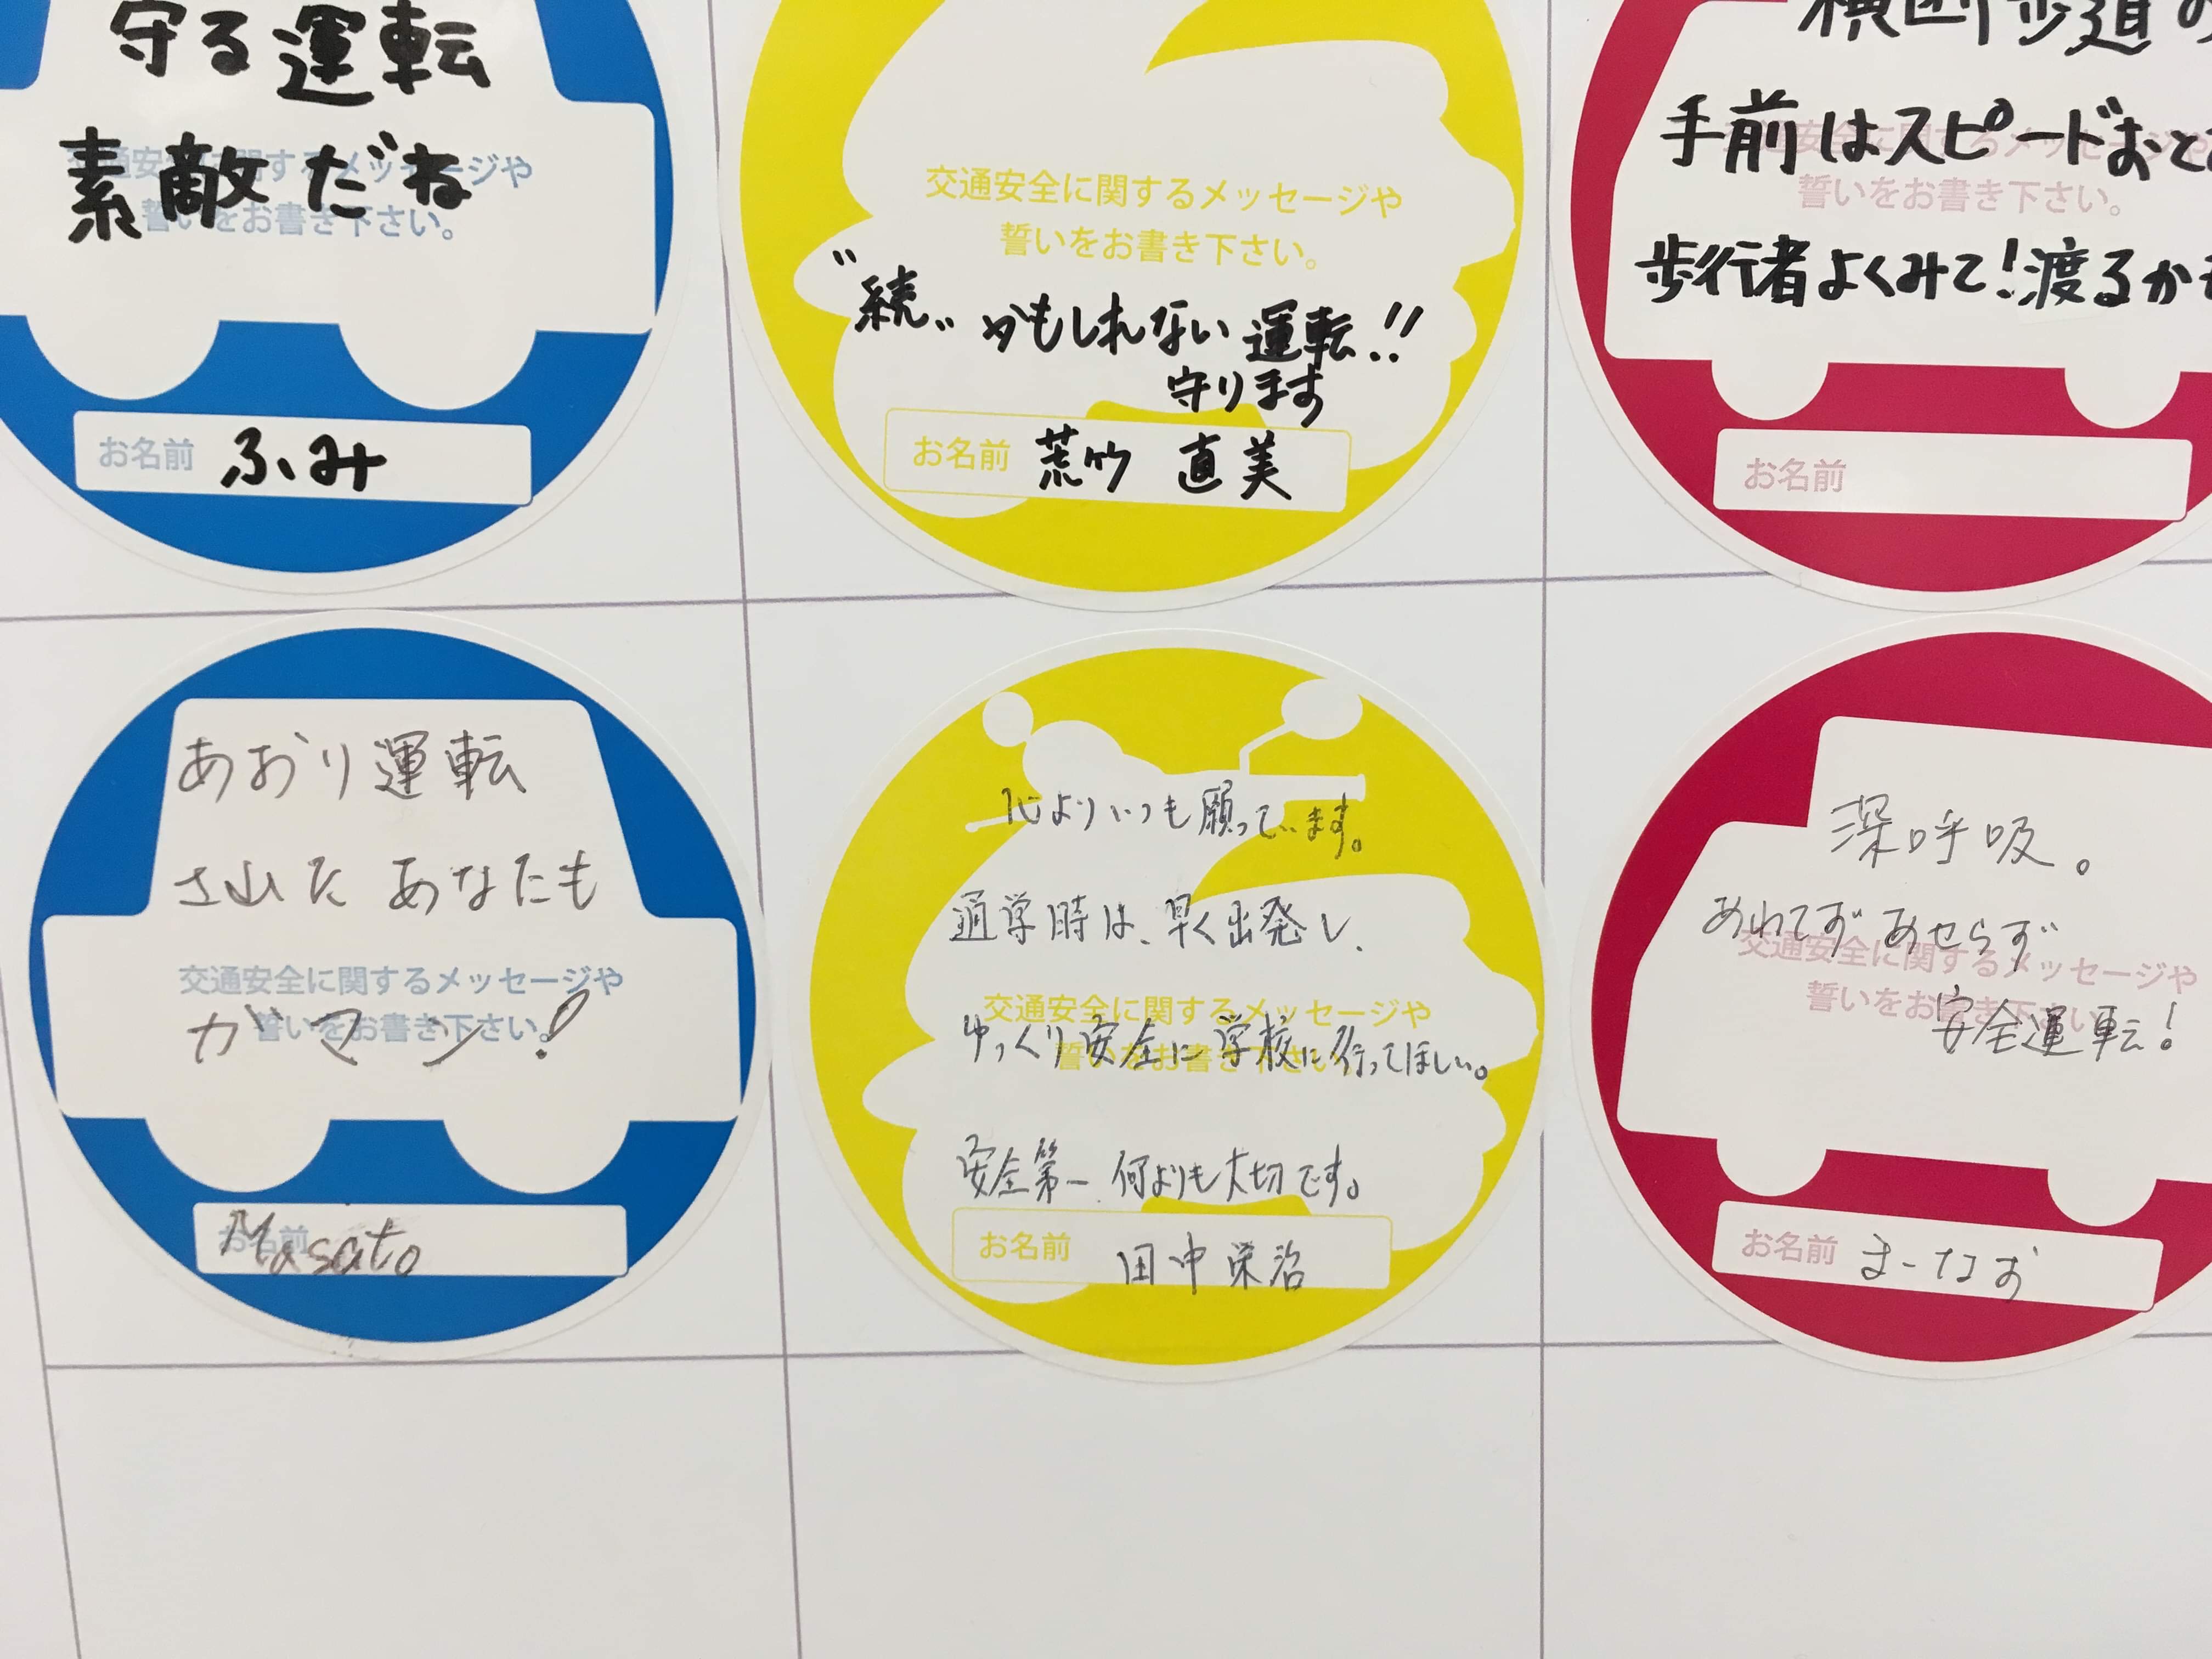 守る運転
素敵だね
交通安全に関するメッセージや
誓いをお書き下さい。
お名前 ふみ
交通安全に関するメッセージや
誓いをお書き下さい。
"続" かもしれない運転!!
守ります
お名前 荒竹 直美
横断歩道の
手前はスピードおと
交通安全に関するメッセージや
誓いをお書き下さい。
歩行者よくみて!渡るかも
お名前
あおり運転
された あなたも
交通安全に関するメッセージや
誓いをお書き下さい。
ガマン!
お名前 Masato
心よりいつも願っています。
通学時は、早く出発し、
交通安全に関するメッセージや
誓いをお書き下さい
ゆっくり安全に学校に行ってほしい。
安全第一 何よりも大切です。
お名前 田中栄治
深呼吸。
あわてず あせらず
交通安全に関するメッセージや
誓いをお書き下さい
安全運転!
お名前 まーなお